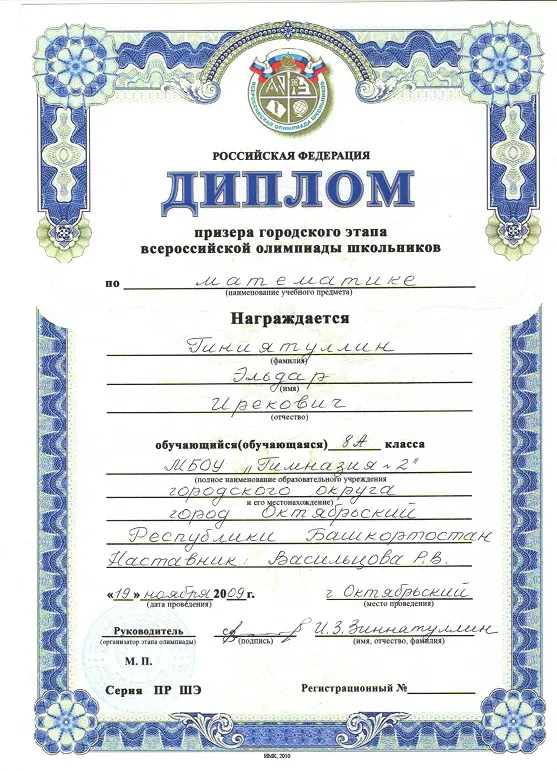 ВСЕРОССИЙСКАЯ ОЛИМПИАДА ШКОЛЬНИКОВ
РОССИЙСКАЯ ФЕДЕРАЦИЯ
ДИПЛОМ
призера городского этапа
всероссийской олимпиады школьников
по математике
(наименование учебного предмета)
Награждается
Гиниятуллин
(фамилия)
Эльдар
(имя)
Ирекович
(отчество)
обучающийся(обучающаяся) 8А класса
МБОУ „Гимназия №2"
(полное наименование образовательного учреждения
городского округа
и его местонахождение)
город Октябрьский
Республики Башкортостан
Наставник: Васильцова Р.В.
«19» ноября 2009 г. г. Октябрьский
(дата проведения) (место проведения)
Руководитель И.З.Зиннатуллин
(организатор этапа олимпиады) (подпись) (имя, отчество, фамилия)
М. П.
Серия ПР ШЭ Регистрационный №
ИМК, 2010